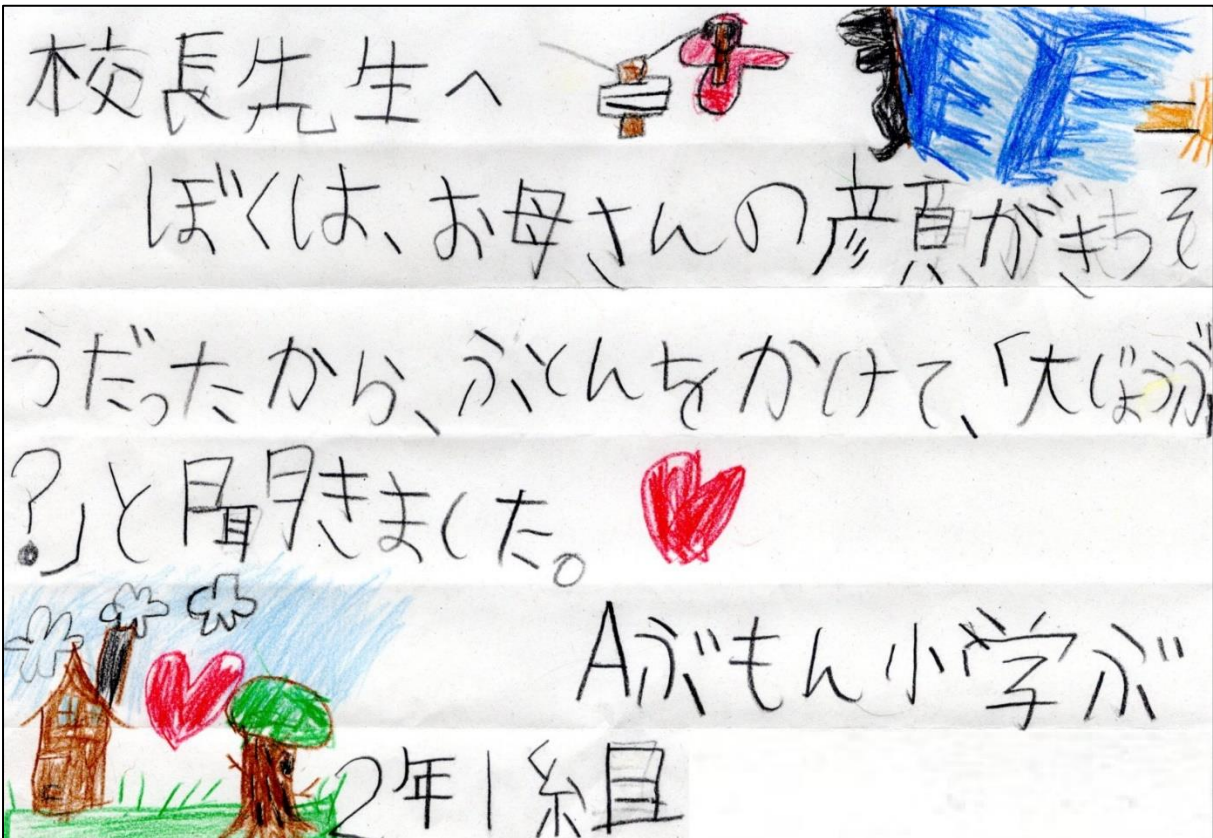 校長先生へ
ぼくは、お母さんの顔がきつそ
うだったから、ふとんをかけて、「大じょうぶ
？」と聞きました。
Aぶもん小学ぶ
2年1組